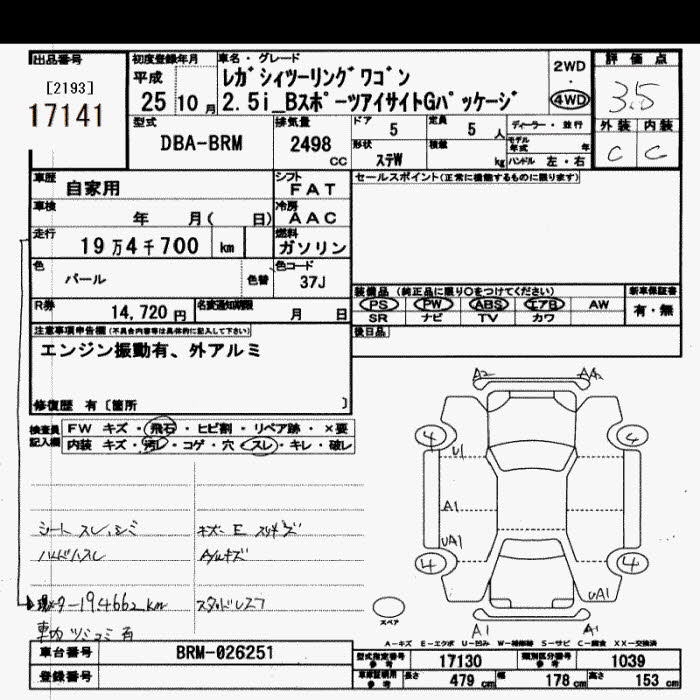 出品番号
[2193]
17141
初度登録年月
平成
25 10 月
車名・グレード
レガシィツーリングワゴン
2.5i_BスポーツアイサイトGパッケージ
2WD
・
4WD
評価点
3.5
外装 内装
C C
型式
DBA-BRM
排気量
2498
CC
ドア
5
定員
5 人
形状
ステW
積載
kg
ディーラー・並行
モデル年式 年
ハンドル 左・右
車歴
自家用
シフト
FAT
車検
年 月( 日)
冷房
AAC
走行
19万4千700 km
燃料
ガソリン
色
パール
色替
色コード
37J
R券
14,720 円
名変通知期限
月 日
セールスポイント(正常に機能するものに限ります)
装備品 (純正品に限り○をつけてください)
PS PW ABS エアB AW
SR ナビ TV カワ
新車保証書
有・無
後日品
注意事項申告欄(不具合内容等は具体的に記入して下さい)
エンジン振動有、外アルミ
修復歴 有〔箇所 〕
検査員記入欄
FW キズ・飛石・ヒビ割・リペア跡・×要
内装 キズ・汚レ・コゲ・穴・スレ・キレ・破レ
シート スレ、シミ
キズ E スリキズ
ハンドルスレ
A/Wキズ
メーター194662km
スタッドレス
A2 AA
4 4
U1
A1
UA1
4 4
UA1
A1 A1
スペア
A-キズ E-エクボ U-凹み W-補修跡 S-サビ C-腐食 XX-交換済
車台番号
BRM-026251
登録番号
型式指定番号
参考
17130
類別区分番号
参考
1039
車庫証明用
参考
長さ 479 cm
幅 178 cm
高さ 153 cm